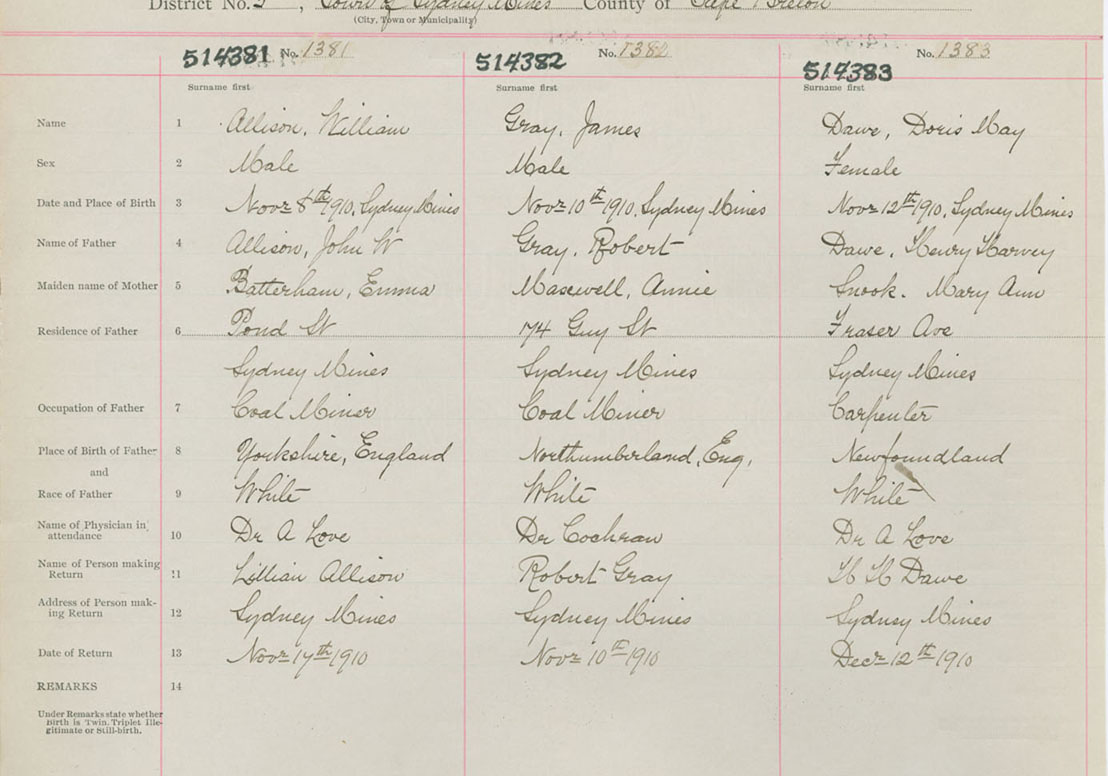 District No. 5, Town of Sydney Mines County of Cape Breton
(City, Town or Municipality)
514381 No. 1381 514382 No. 1382 514383 No. 1383
Surname first Surname first Surname first
Name 1 Allison, William Gray, James Dawe, Doris May
Sex 2 Male Male Female
Date and Place of Birth 3 Novr 8th 1910, Sydney Mines Novr 10th 1910, Sydney Mines Novr 12th 1910, Sydney Mines
Name of Father 4 Allison, John W Gray, Robert Dawe, Henry Harvey
Maiden name of Mother 5 Batterham, Emma Maxwell, Annie Snook. Mary Ann
Residence of Father 6 Pond St 174 Guy St Fraser Ave
Sydney Mines Sydney Mines Sydney Mines
Occupation of Father 7 Coal Miner Coal Miner Carpenter
Place of Birth of Father 8 Yorkshire, England Northumberland, Eng. Newfoundland
and
Race of Father 9 White White White
Name of Physician in
attendance 10 Dr A Love Dr Cochran Dr A Love
Name of Person making
Return 11 Lillian Allison Robert Gray H H Dawe
Address of Person mak-
ing Return 12 Sydney Mines Sydney Mines Sydney Mines
Date of Return 13 Novr 17th 1910 Novr 10th 1910 Decr 12th 1910
REMARKS 14
Under Remarks state whether
Birth is Twin, Triplet Ille-
gitimate or Still-birth.